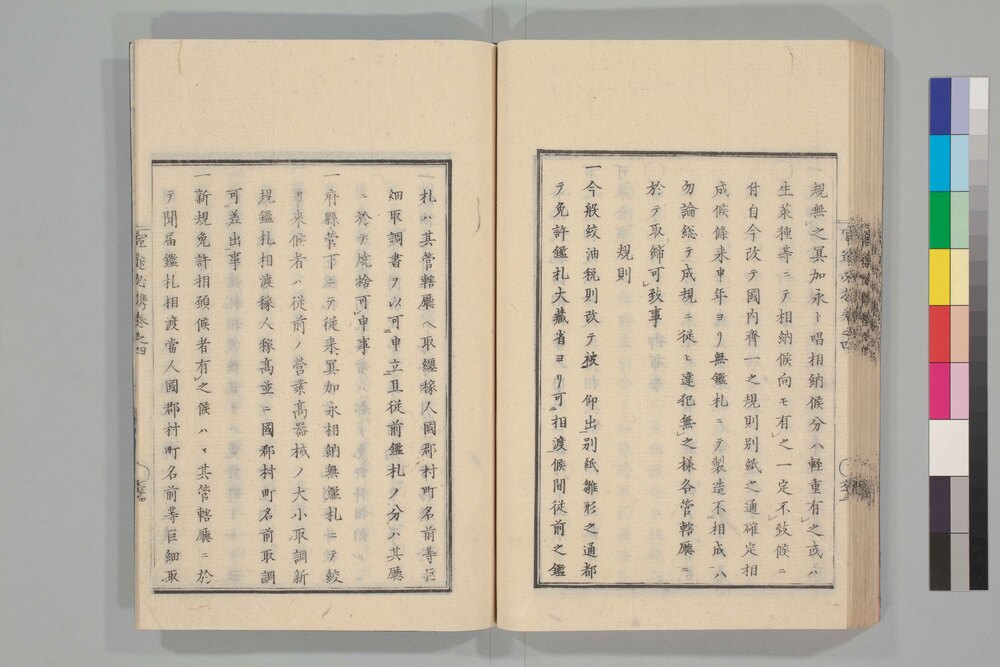 規無之冥加永ト唱相納候分ハ軽重有之或ハ
生菜種等ニテ相納候向モ有之一定不致候ニ
付自今改テ國内齊一之規則別紙之通確定相
成候條来申年ヨリ無鑑札ニテ製造不相成ハ
勿論総テ成規ニ従ヒ違犯無之様各管轄廳ニ
於テ取締可致事
規則
一今般絞油税則改テ被仰出別紙雛形之通都
テ免許鑑札大藏省ヨリ可相渡候間従前之鑑
札ハ其管轄廳ヘ取纒稼人國郡村町名前等巨
細取調書ヲ以可申立且従前鑑札ノ分ハ其廳
ニ於テ焼捨可申事
一府縣管下ニテ従来冥加永相納無鑑札ニテ絞
リ来候者ハ従前ノ営業高器械ノ大小取調新
規鑑札相渡稼人稼高並ニ國郡村町名前取調
可差出事
一新規免許相願候者有之候ハヽ其管轄廳ニ於
テ聞届鑑札相渡當人國郡村町名前等巨細取